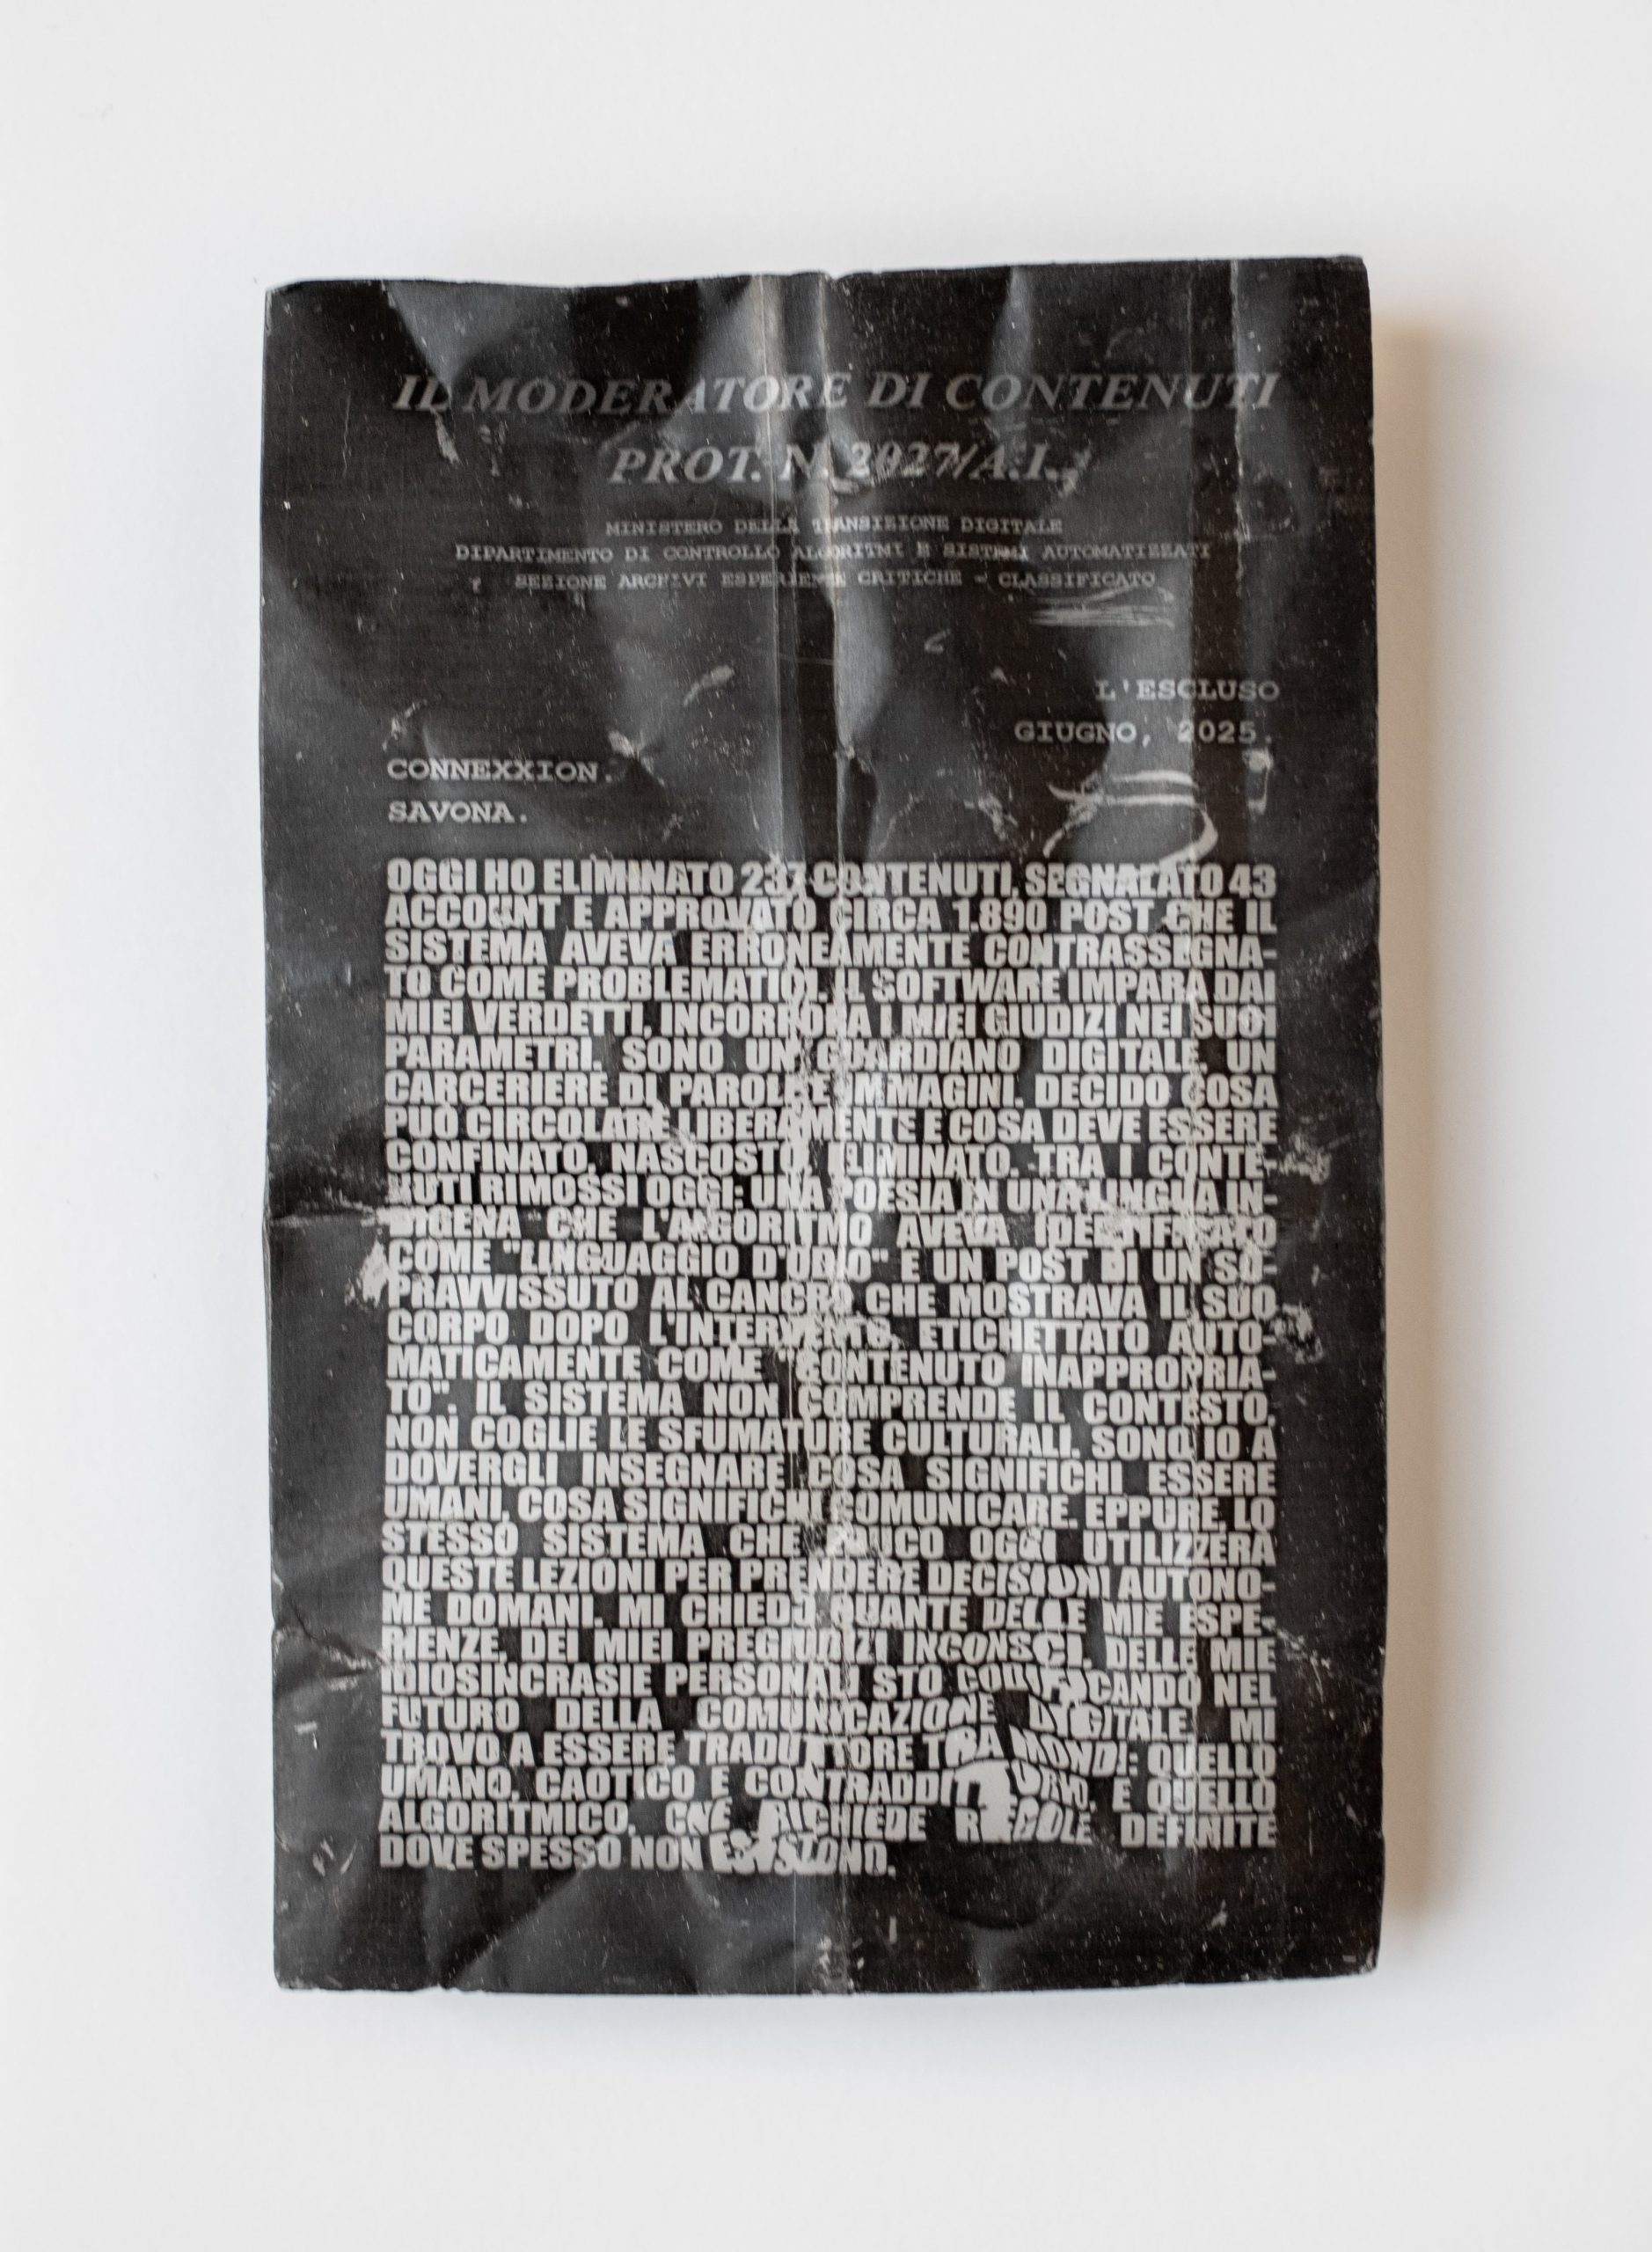 IL MODERATORE DI CONTENUTI
PROT. N. 2027/A.I.
MINISTERO DELLA TRANSIZIONE DIGITALE
DIPARTIMENTO DI CONTROLLO ALGORITMI E SISTEMI AUTOMATIZZATI
SEZIONE ARCHIVI ESPERIENZE CRITICHE - CLASSIFICATO
L'ESCLUSO
GIUGNO, 2025.
CONNEXXION.
SAVONA.
OGGI HO ELIMINATO 237 CONTENUTI, SEGNALATO 43
ACCOUNT E APPROVATO CIRCA 1.890 POST CHE IL
SISTEMA AVEVA ERRONEAMENTE CONTRASSEGNA-
TO COME PROBLEMATICI. IL SOFTWARE IMPARA DAI
MIEI VERDETTI, INCORPORA I MIEI GIUDIZI NEI SUOI
PARAMETRI. SONO UN GUARDIANO DIGITALE, UN
CARCERIERE DI PAROLE E IMMAGINI. DECIDO COSA
PUÒ CIRCOLARE LIBERAMENTE E COSA DEVE ESSERE
CONFINATO, NASCOSTO, ELIMINATO. TRA I CONTE-
NUTI RIMOSSI OGGI: UNA POESIA IN UNA LINGUA IN-
DIGENA CHE L'ALGORITMO AVEVA IDENTIFICATO
COME "LINGUAGGIO D'ODIO" E UN POST DI UN SO-
PRAVVISSUTO AL CANCRO CHE MOSTRAVA IL SUO
CORPO DOPO L'INTERVENTO, ETICHETTATO AUTO-
MATICAMENTE COME "CONTENUTO INAPPROPRIA-
TO". IL SISTEMA NON COMPRENDE IL CONTESTO,
NON COGLIE LE SFUMATURE CULTURALI. SONO IO A
DOVERGLI INSEGNARE COSA SIGNIFICHI ESSERE
UMANI, COSA SIGNIFICHI COMUNICARE. EPPURE, LO
STESSO SISTEMA CHE EDUCO OGGI UTILIZZERÀ
QUESTE LEZIONI PER PRENDERE DECISIONI AUTONO-
ME DOMANI. MI CHIEDO QUANTE DELLE MIE ESPE-
RIENZE, DEI MIEI PREGIUDIZI INCONSCI, DELLE MIE
IDIOSINCRASIE PERSONALI STO CODIFICANDO NEL
FUTURO DELLA COMUNICAZIONE DIGITALE. MI
TROVO A ESSERE TRADUTTORE TRA MONDI: QUELLO
UMANO, CAOTICO E CONTRADDITTORIO, E QUELLO
ALGORITMICO, CHE RICHIEDE REGOLE DEFINITE
DOVE SPESSO NON ESISTONO.